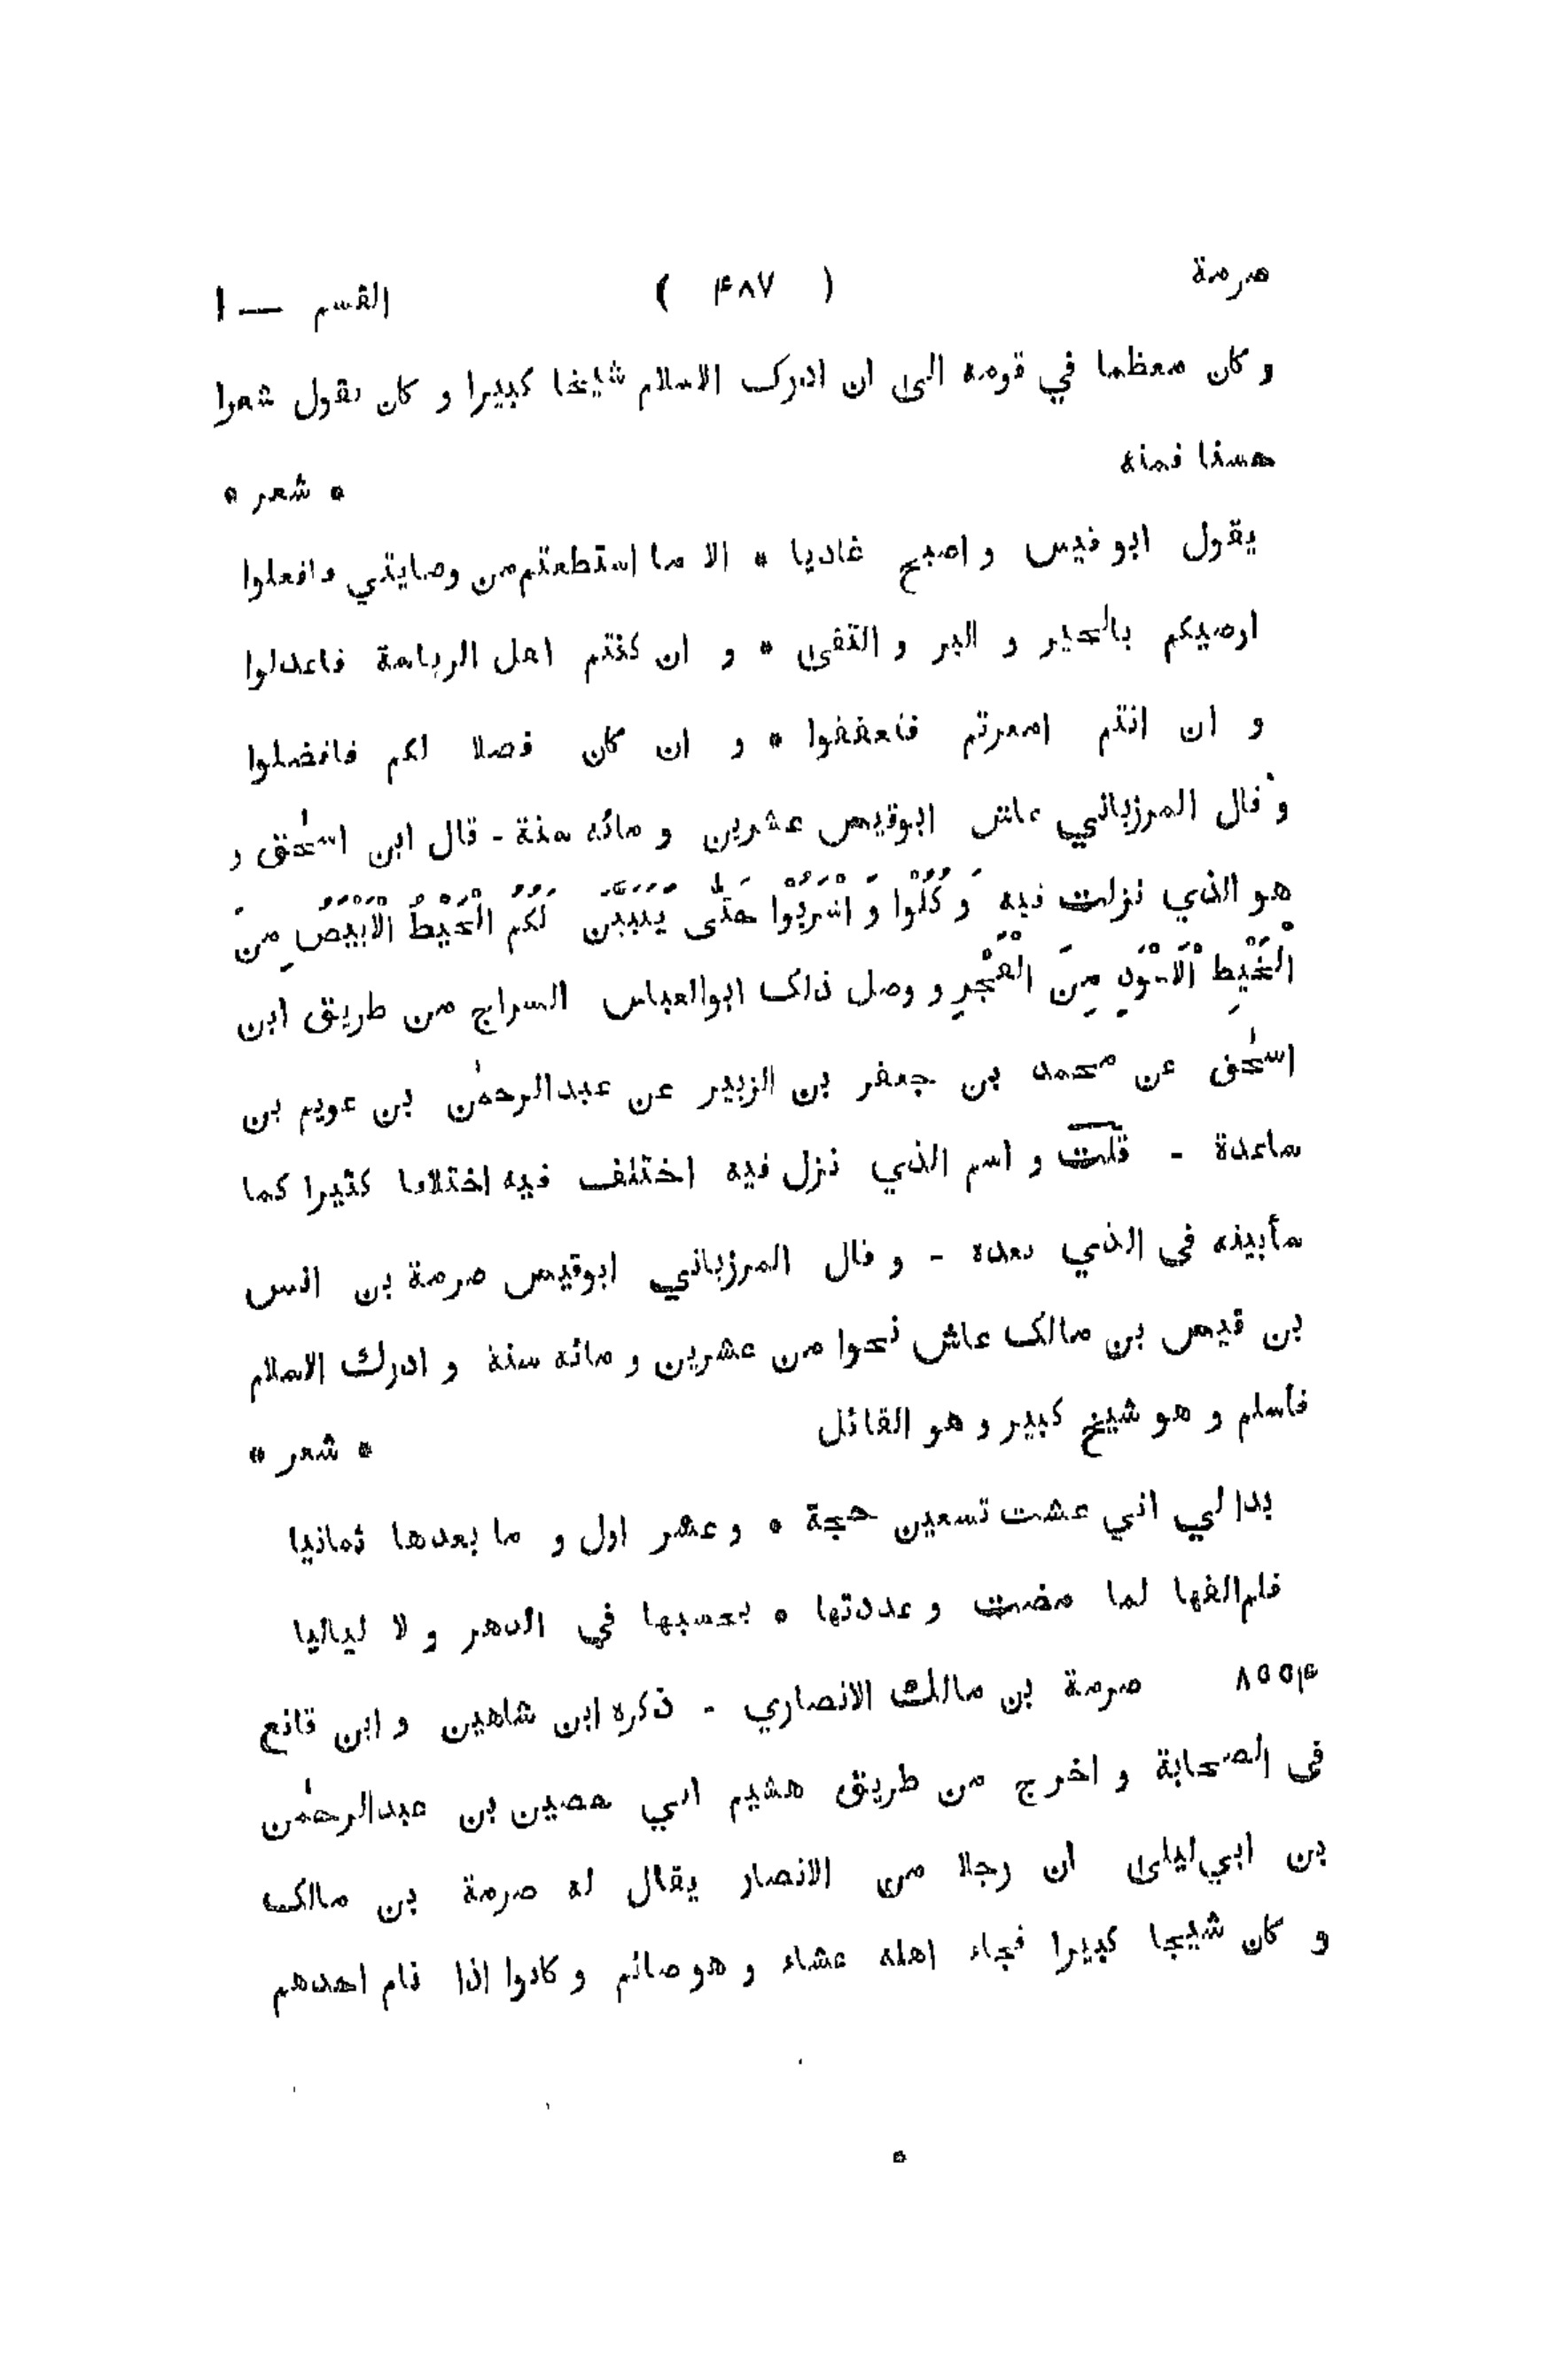 صرمة ( ۴۸۷ ) القسم — ا
و كان معظما في قومه الى ان ادرك الاسلام شيخا كبيرا و كان يقول شعرا
حسنا فمنه * شعر *
يقول ابو قيس و اصبح غاديا * الا ما استطعتم من وصايتي فافعلوا
اوصيكم بالخير و البر و التقى * و ان كنتم اهل الرياسة فاعدلوا
و ان انتم امعرتم فتعففوا * و ان كان فضلا لكم فافضلوا
و قال المرزباني عاش ابوقيس عشرين و مائه سنة - قال ابن اسحٰق و
هو الذي نزلت فيه وَ كُلُوْا وَ اشْرَبُوْا حَتّٰى يَتَبَيَّنَ لَكُمُ الْخَيْطُ الْاَبْيَضُ مِنَ
الْخَيْطِ الْاَسْوَدِ مِنَ الْفَجْرِ و وصل ذلك ابوالعباس السراج من طريق ابن
اسحٰق عن محمد بن جعفر بن الزبير عن عبدالرحمٰن بن عويم بن
ساعدة - قلت و اسم الذي نزل فيه اختلف فيه اختلافا كثيرا كما
سأبينه فى الذي بعده - و قال المرزباني ابوقيس صرمة بن انس
بن قيس بن مالك عاش نحوا من عشرين و مائه سنة و ادرك الاسلام
فأسلم و هو شيخ كبير و هو القائل * شعر *
بدا لي اني عشت تسعين حجة * و عشر اول و ما بعدها ثمانيا
فلم الفها لما مضت و عددتها * بحسبها في الدهر و لا لياليا
۸۵۵۴ صرمة بن مالك الانصاري - ذكره ابن شاهين و ابن قانع
فى الصحابة و اخرج من طريق هشيم حصين بن عبدالرحمٰن
بن ابي ليلى ان رجلا من الانصار يقال له صرمة بن مالك
و كان شيخا كبيرا فجاء اهله عشاء و هو صائم و كانوا اذا نام احدهم